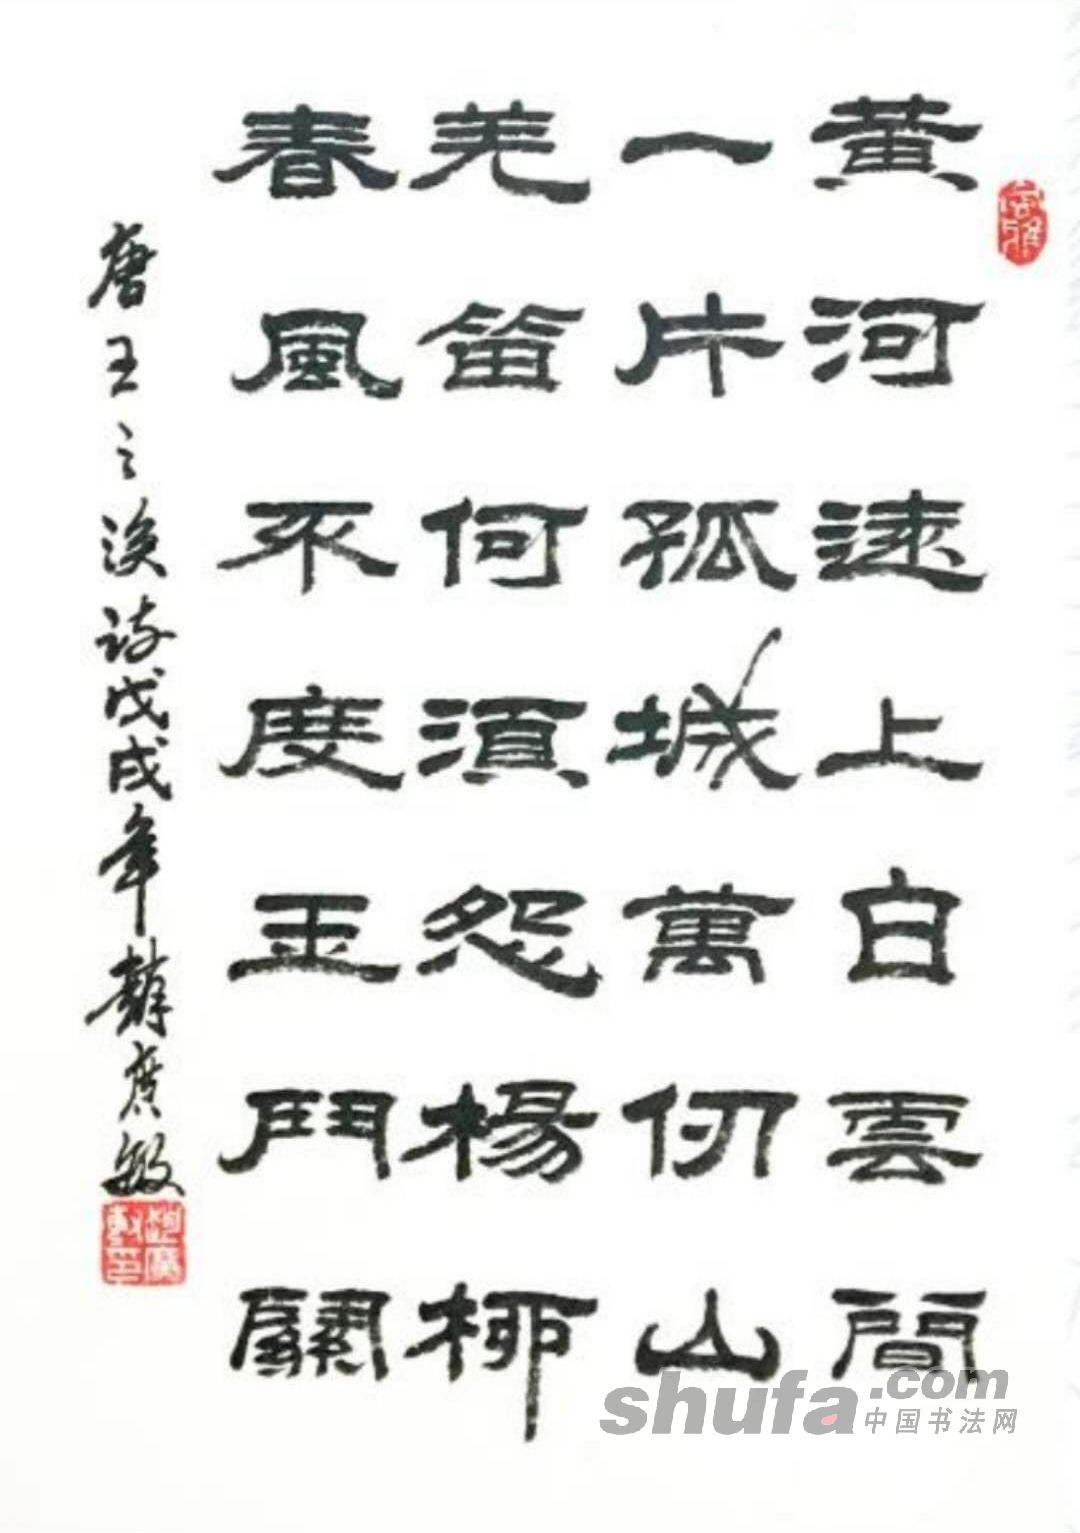 黄河遠上白雲間
一片孤城萬仞山
羌笛何須怨楊柳
春風不度玉門關
唐王之渙诗戊戌年廣敏
shufa.com
中国书法网